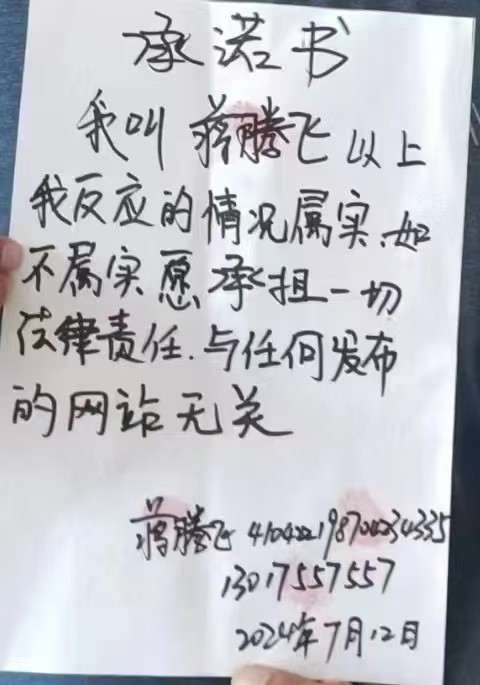 承诺书
我叫蒋腾飞以上
我反应的情况属实、如
不属实愿承担一切
法律责任.与任何发布
的网站无关
蒋腾飞 410422198704234335
13017557557
2024年7月12日